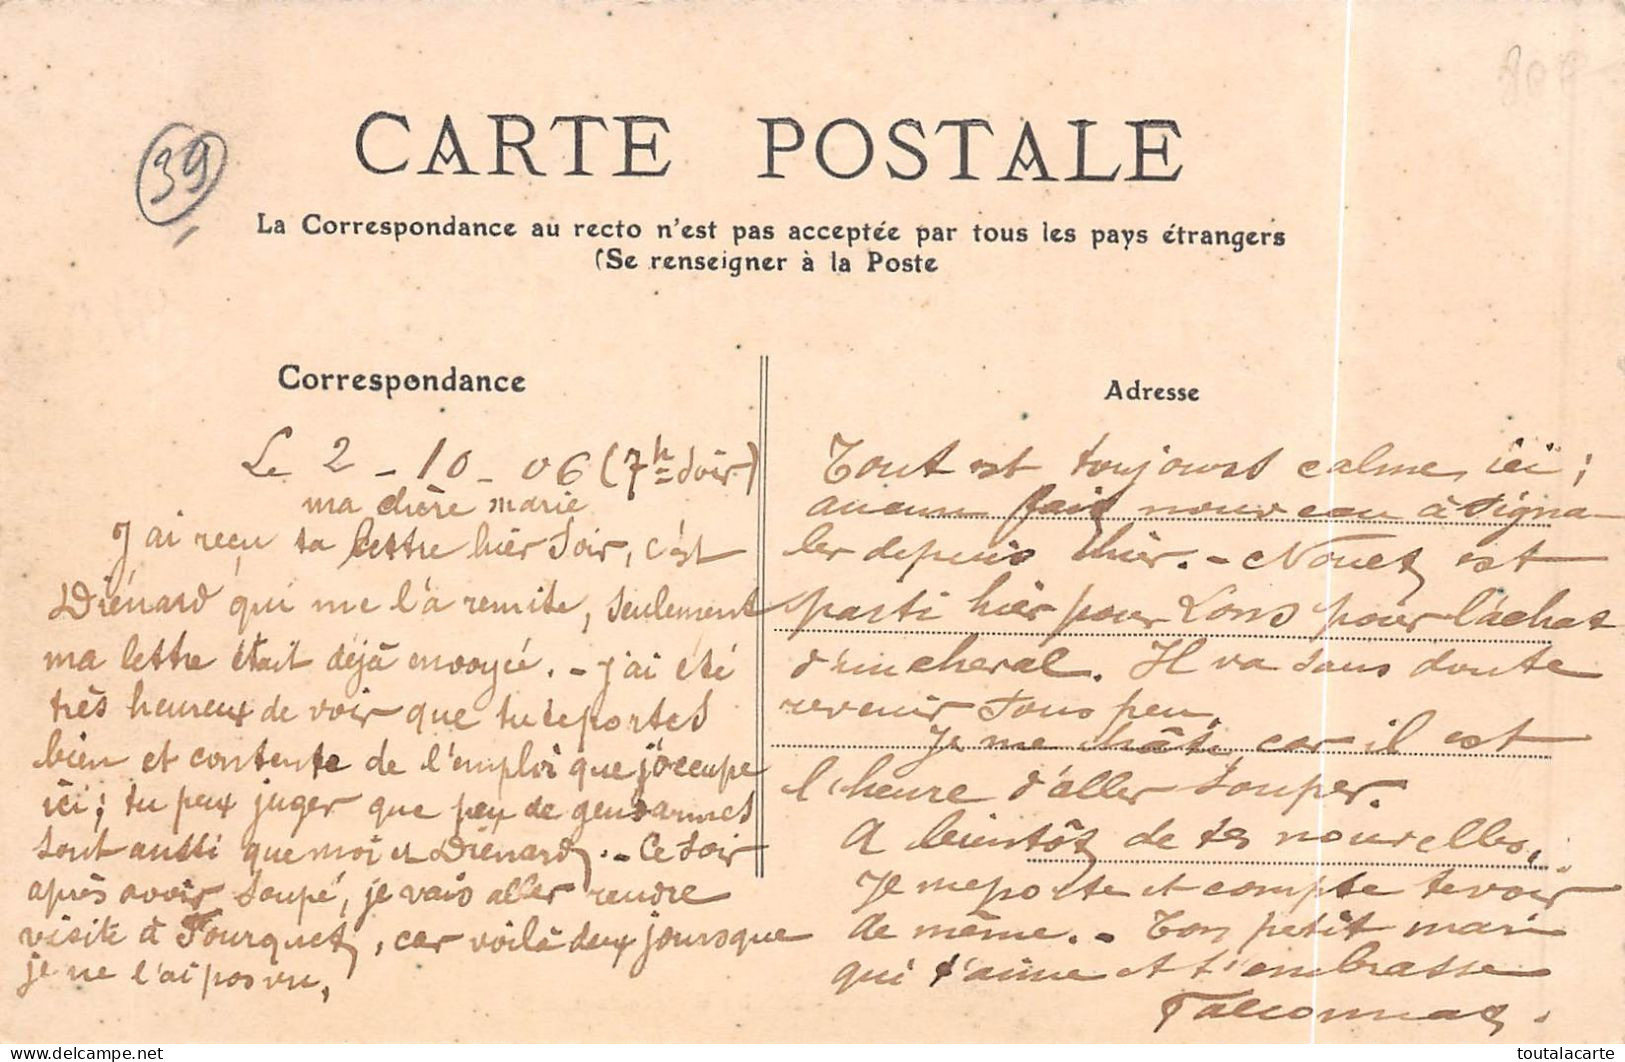 39
CARTE POSTALE
La Correspondance au recto n'est pas acceptée par tous les pays étrangers
(Se renseigner à la Poste
Correspondance
Le 2 - 10 - 06 (7h Soir)
ma chère marie
J'ai reçu ta lettre hier Soir, c'est
Diénard qui me l'a remite, seulement
ma lettre était déjà envoyée. - j'ai été
très heureux de voir que tu te portes
bien et contente de l'emploi que j'occupe
ici; tu peux juger que peu de gendarmes
sont aussi que moi et Diénard. - Ce soir
après avoir soupé, je vais aller rendre
visite à Fourquet, car voilà deux jours que
je ne l'ai pas vu,
Adresse
Tout est toujours calme ici;
aucun fait nouveau à signa-
ler depuis hier. - Nouet est
parti hier pour Lons pour l'achat
d'un cheval. Il va sans doute
revenir sous peu.
Je me hâte car il est
l'heure d'aller souper.
A bientôt de tes nouvelles,
Je me porte et compte te voir
de même. - Ton petit mari
qui t'aime et t'embrasse
Falconnat.
toutalacarte